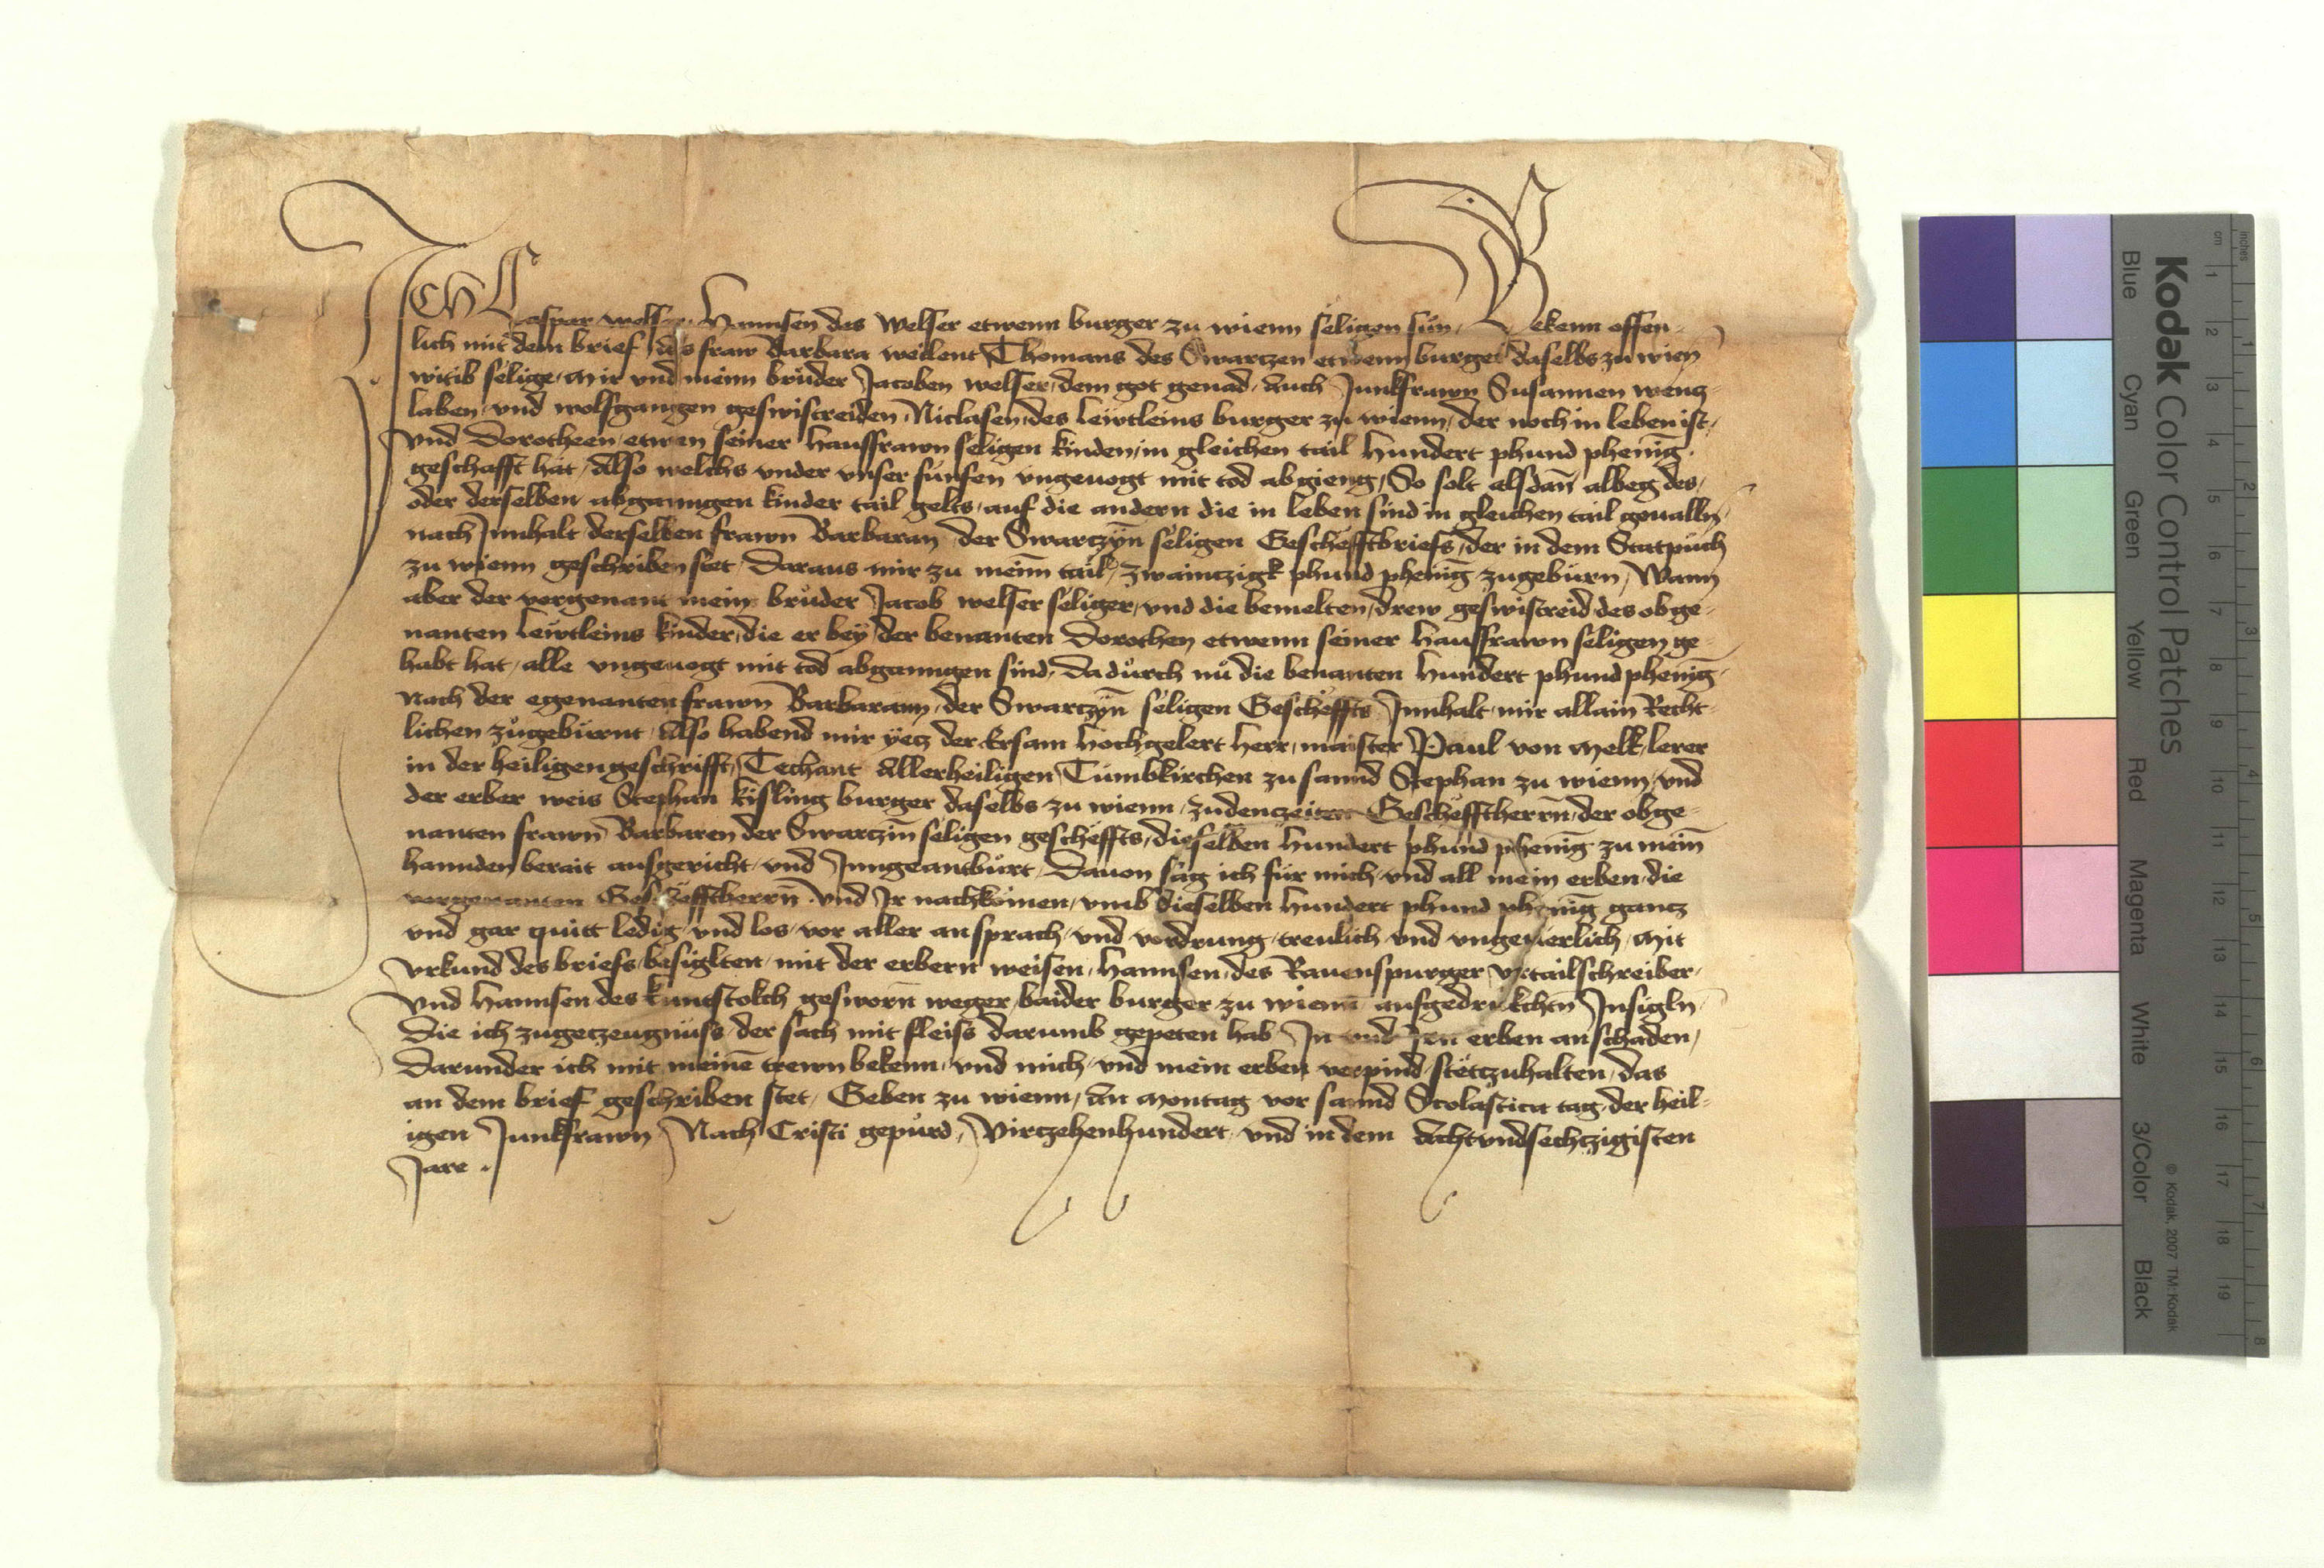 Ich Caspar welser Hannsen des Welser etwenn burger zu wienn seligen sun, Bekenn offen-
lich mit dem brief das fraw Barbara weilent Thomans des Swartzen etwenn burger daselbs zu wien
witib selige, mir vnd meinn brůder Jacoben welser, dem got genad, Auch Junkfrawn Susannen wentz-
laben vnd wolfgangen geswistreiden, Niclasen des lewtleins burger zu wienn, der noch in leben ist,
vnd Dorotheen etwen seiner hausfrawn seligen kinden, in gleichen tail hundert phund phening
geschafft hat, Also welchs vnder vnser fünfen vngeuogt mit tod abgieng, So solt alsdan̄ albeg des,
oder derselben abganngen kinder tail gelts, auf die andern die in leben sind in gleichen tail geualln̄
nach Innhalt derselben frawn Barbaran der Swartzÿn̄ seligen Geschefftbriefs, der in dem Statpuch
zu wienn geschriben stet, Daraus mir zu meinn tail, zwaintzigk phund phening zugebürn, Wann
aber der vorgenant mein brůder Jacob welser seliger, vnd die bemelten drew geswistreid des obge-
nanten lewtleins kinder, die er bey der benanten Dorothen etwenn seiner hausfrawn seligen ge-
habt hat, alle vngeuogt mit tod abganngen sind, dadůrch nů die benanten hundert phund phening,
nach der egenanten frawn Barbarann, der Swartzÿn̄ seligen Gescheffts Innhalt, mir allain Recht-
lichen zůgebürnt, Also habend mir ÿetz der Ersam hochgelert herr, maister Paul von melk, lerer
in der heiligen geschrifft, Techant Allerheiligen Tümbkirchen zu sannd Stephan zu wienn, vnd
der erber weis Stephan kisling burger daselbs zu wienn, zudenzeiten Geschefftherrn̄, der obge-
nanten frawn Barbaren der Swartzin̄ seligen gescheffts, dieselben hundert phund phening zu mein̄
hannden berait ausgericht vnd Inngeantbürt, Dauon sag ich für mich, vnd all mein erben, die
vorgenanten Geschefftherrn̄ vnd Ir nachkomen, vmb dieselben hundert phund phening gantz
vnd gar quitt ledig vnd los, vor aller ansprach, vnd vordrung, treulich vnd vngeuerlich, mit
vrkund des briefs, besiglten, mit der erbern weisen, Hannsen, des Rauenspurger vrtailschreiber,
vnd Hannsen des kunstokch gesworn̄ weger, baider burger zu wienn̄ aufgedrukchtn̄ Insigln̄
Die ich zugetzeugnüss, der sach mit fleiss darumb gepeten hab In vnd Irn erben an schaden,
Darunder ich mit meinē trewn bekenn, vnd mich, vnd mein erben verpind, stëtzuhalten, das
an dem brief geschriben stet, Geben zu wienn, An montag vor sannd Scolastica tag, der heil-
igen Junkfrawn, Nach Cristi gepůrd, Virtzehenhundert, vnd in dem Achtvndsechtzigisten
Jare .
Kodak Color Control Patches
Blue Cyan Green Yellow Red Magenta White 3/Color Black
© Kodak, 2007 TM: Kodak
inches 1 2 3 4 5 6 7 8
cm 1 2 3 4 5 6 7 8 9 10 11 12 13 14 15 16 17 18 19